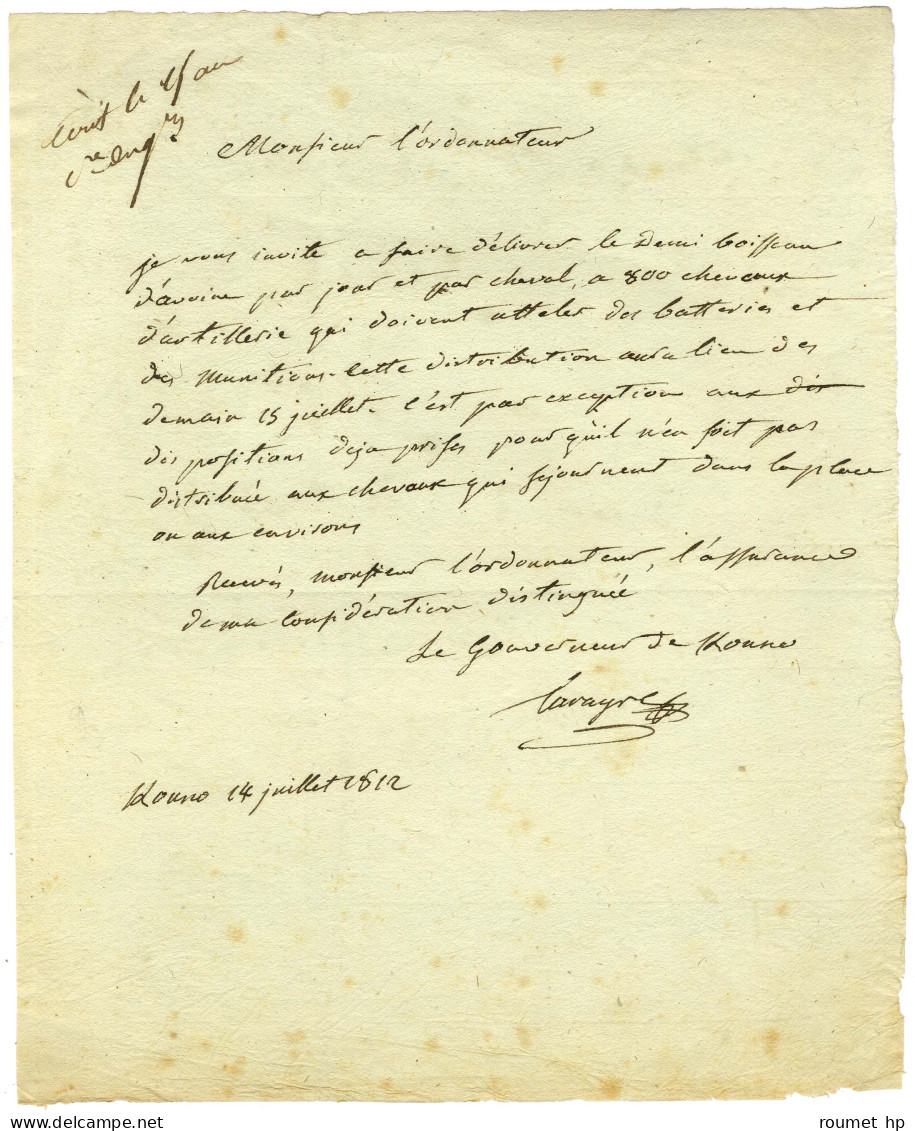 écrit le 15 au
Monsieur l'ordonnateur
je vous invite a faire délivrer le demi boisseau
d'avoine par jour et par cheval, a 800 chevaux
d'artillerie qui doivent atteler des batteries et
des munitions. cette distribution aura lieu des
demain 15 juillet. c'est par exception aux dis
dispositions deja prises pour qu'il n'en soit pas
distribuée aux chevaux qui séjournent dans la place
ou aux environs
Recevés, monsieur l'ordonnateur, l'assurance
de ma considération distinguée
Le Gouverneur de Kouno
Kouno 14 juillet 1812
roumet hp
www.delcampe.net